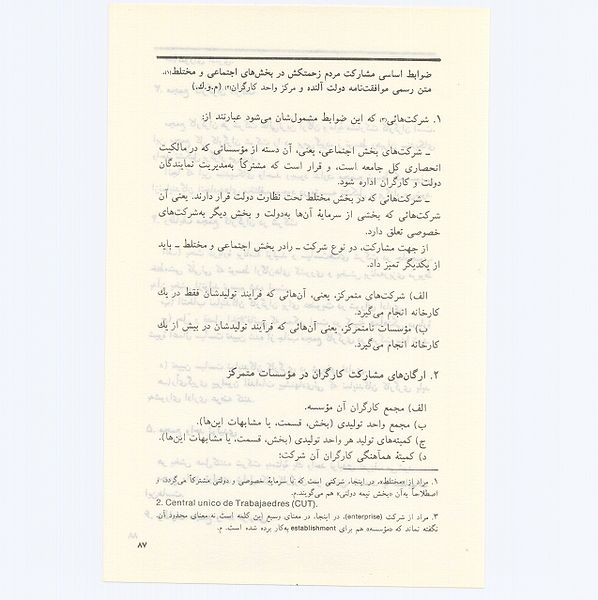 ضوابط اساسی مشارکت مردم زحمتکش در بخش‌های اجتماعی و مختلط(۱)،
متن رسمی موافقت‌نامه دولت آلنده و مرکز واحد کارگران(۲) (م.و.ك.)
۱. شرکت‌هائی(۳) که این ضوابط مشمول‌شان می‌شود عبارتند از:
ـ شرکت‌های بخش اجتماعی، یعنی، آن دسته از مؤسساتی که در مالکیت
انحصاری کل جامعه است، و قرار است که مشترکاً به‌مدیریت نمایندگان
دولت و کارگران اداره شود.
ـ شرکت‌هائی که در بخش مختلط تحت نظارت دولت قرار دارند. یعنی آن
شرکت‌هائی که بخشی از سرمایهٔ آن‌ها به‌دولت و بخش دیگر به‌شرکت‌های
خصوصی تعلق دارد.
از جهت مشارکت، دو نوع شرکت ـ رادر بخش اجتماعی و مختلط ـ باید
از یکدیگر تمیز داد.
الف) شرکت‌های متمرکز، یعنی، آن‌هائی که فرآیند تولیدشان فقط در یك
کارخانه انجام می‌گیرد.
ب) مؤسسات نامتمرکز، یعنی آن‌هائی که فرآیند تولیدشان در بیش از یك
کارخانه انجام می‌گیرد.
۲. ارگان‌های مشارکت کارگران در مؤسسات متمرکز
الف) مجمع کارگران آن مؤسسه.
ب) مجمع واحد تولیدی (بخش، قسمت، یا مشابهات این‌ها).
ج) کمیته‌های تولید هر واحد تولیدی (بخش، قسمت، یا مشابهات این‌ها).
د) کمیتهٔ هماهنگی کارگران آن شرکت:
۱. مراد از «مختلط»، در اینجا، شرکتی است که با سرمایهٔ خصوصی و دولتی مشترکاً می‌گردد، و
اصطلاحاً به‌آن «بخش نیمه دولتی» هم می‌گویند.م.
2. Central unico de Trabajaedres (CUT).
۳. مراد از شرکت (enterprise)، در اینجا، در معنای وسیع این کلمه است نه معنای محدود آن.
نگفته نماند که «مؤسسه» هم برای establishment به‌کار برده شده است. م.
۸۷